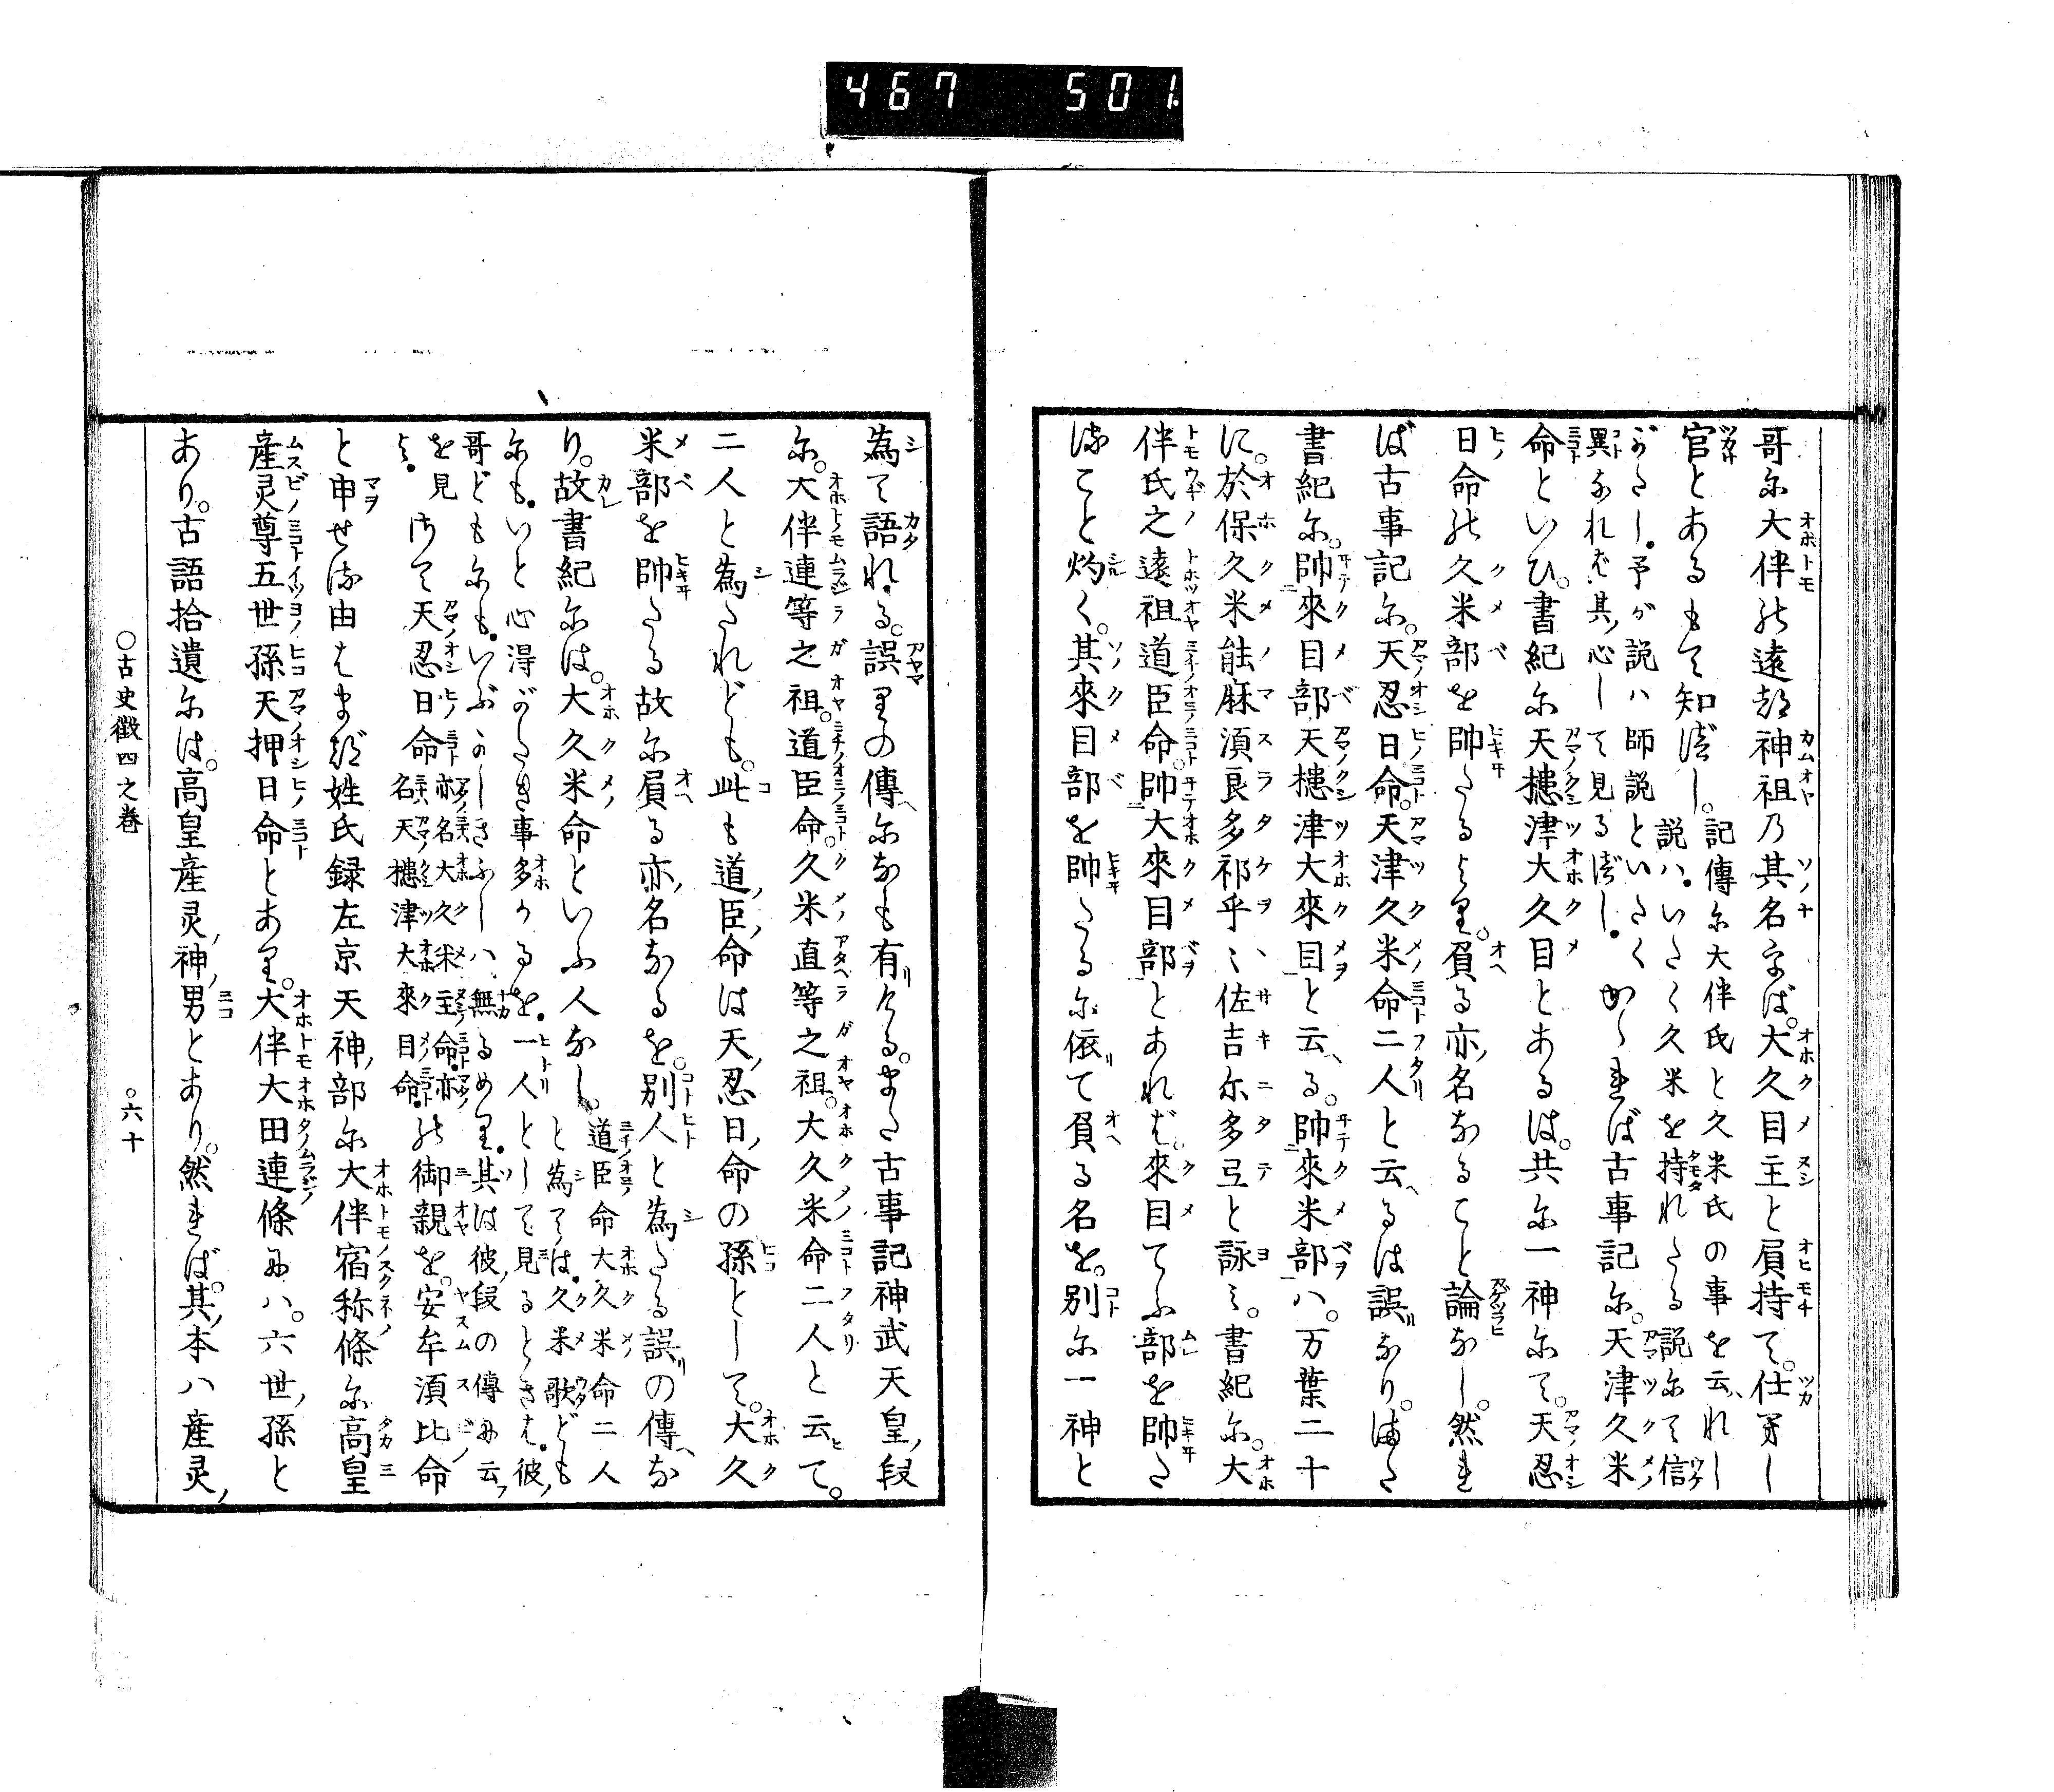 467 501.
哥尓大伴能遠都神祖乃其名字ば。大久目主と屓持て。仕奉し
官とあるもて知べし。記傳尓大伴氏と久米氏の事を云れし
説ハ.いさく久米を持れたる説尓て信
がたし.予が説ハ師説といたく
異なれど其心して見るべし.かゝれば古事記尓。天津久米
命といひ。書紀尓天槵津大久目とあるは。共尓一神尓て。天忍
日命能久米部を帥たるより。屓る亦名なること論なし。然れ
ば古事記尓。天忍日命。天津久米命二人と云るは誤なり。また
書紀尓。帥來目部天槵津大來目と云る。帥來米部ハ。万葉二十
に。於保久米能麻須良多祁乎ゝ佐吉尓多弖と詠ミ。書紀尓。大
伴氏之遠祖道臣命。帥大來目部とあれど。來目てふ部を帥た
ること灼く。其來目部を帥たる尓依て屓る名を。別尓一神と
為て語れる。誤りの傳尓なも有ける。また古事記神武天皇段
尓。大伴連等之祖。道臣命。久米直等之祖。大久米命二人と云て。
二人と為たれども。此も道臣命は天忍日命の孫として。大久
米部を帥たる故尓屓る亦名なるを。別人と為たる誤の傳な
り。故書紀尓は。大久米命といふ人なし。道臣命大久米命二人
と為ては.久米歌ども
尓も.いと心得がたき事多かるを.一人として見るときは.彼
哥ども尓も.いぶかしきふしハ無るめり.其は彼段の傳尓云
を見よ.
さて天忍日命亦名大久米主命.亦名天槵津大來目命.能御親を。安牟須比命
と申せる由はまづ姓氏録左京天神部尓大伴宿祢條尓高皇
産灵尊五世孫天押日命とあり。大伴大田連條にハ。六世孫と
あり。古語拾遺尓は。高皇産灵神男とあり。然れば。其本ハ産灵
○古史徴四之巻 ○六十